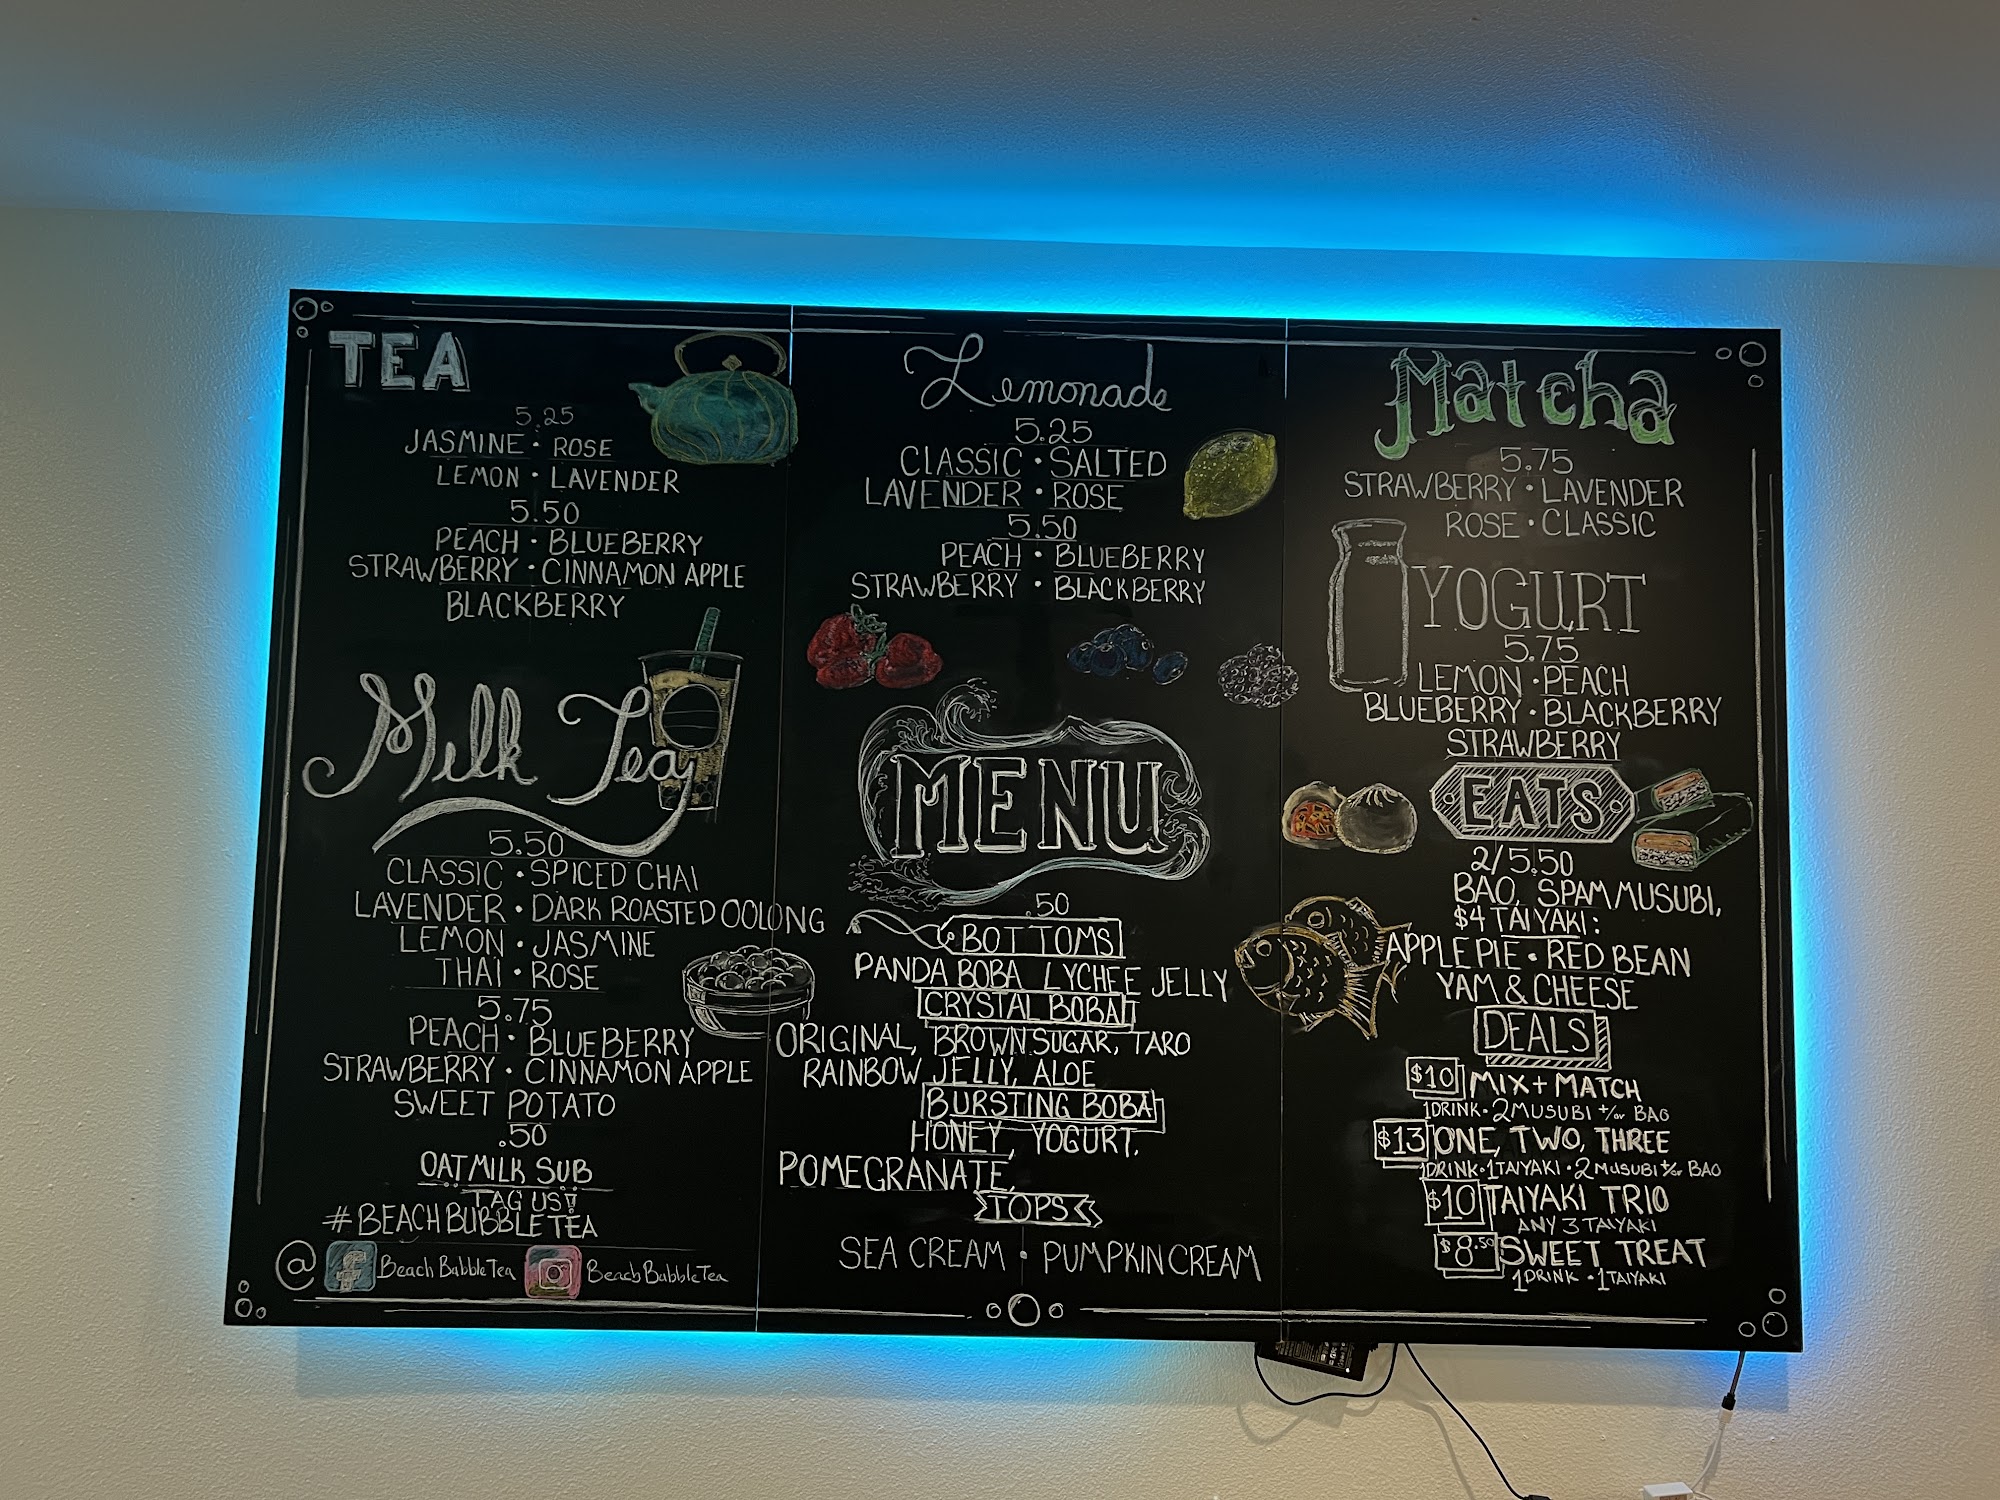 TEA
5.25
JASMINE • ROSE
LEMON • LAVENDER
5.50
PEACH • BLUEBERRY
STRAWBERRY • CINNAMON APPLE
BLACKBERRY
Milk Tea
5.50
CLASSIC • SPICED CHAI
LAVENDER • DARK ROASTED OOLONG
LEMON • JASMINE
THAI • ROSE
5.75
PEACH • BLUEBERRY
STRAWBERRY • CINNAMON APPLE
SWEET POTATO
.50
OATMILK SUB
TAG US!
#BEACHBUBBLETEA
@ f BeachBubbleTea BeachBubbleTea
Lemonade
5.25
CLASSIC • SALTED
LAVENDER • ROSE
5.50
PEACH • BLUEBERRY
STRAWBERRY • BLACKBERRY
MENU
.50
BOTTOMS
PANDA BOBA LYCHEE JELLY
CRYSTAL BOBA
ORIGINAL, BROWN SUGAR, TARO
RAINBOW JELLY, ALOE
BURSTING BOBA
HONEY, YOGURT,
POMEGRANATE,
TOPS
SEA CREAM • PUMPKIN CREAM
Matcha
5.75
STRAWBERRY • LAVENDER
ROSE • CLASSIC
YOGURT
5.75
LEMON • PEACH
BLUEBERRY • BLACKBERRY
STRAWBERRY
EATS
2/5.50
BAO, SPAM MUSUBI,
$4 TAIYAKI:
APPLE PIE • RED BEAN
YAM & CHEESE
DEALS
$10 MIX + MATCH
1 DRINK • 2 MUSUBI +/or BAO
$13 ONE, TWO, THREE
1 DRINK • 1 TAIYAKI • 2 MUSUBI +/or BAO
$10 TAIYAKI TRIO
ANY 3 TAIYAKI
$8.50 SWEET TREAT
1 DRINK • 1 TAIYAKI